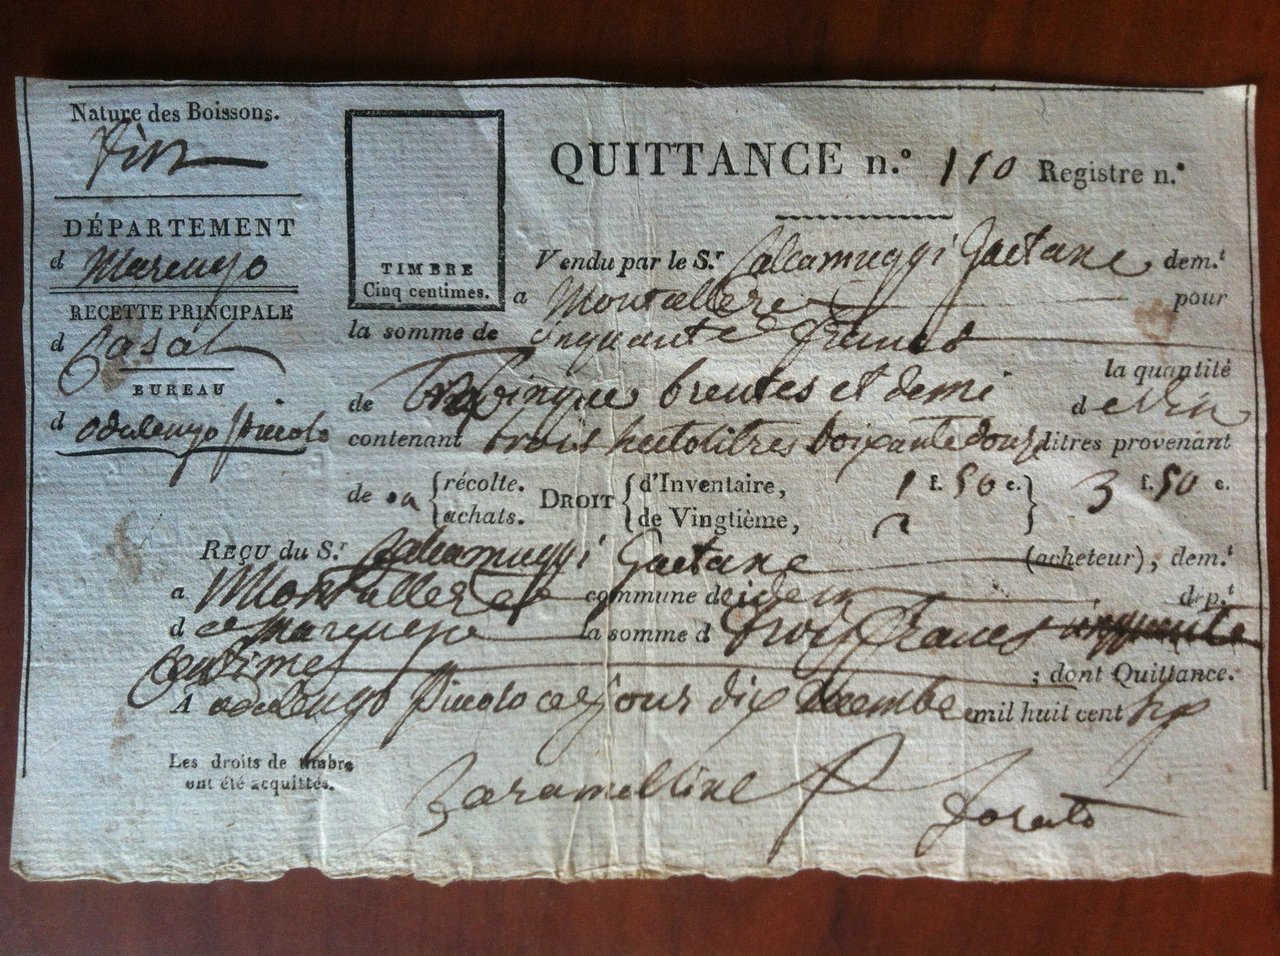 Nature des Boissons.
Vin
DÉPARTEMENT
d Marengo
RECETTE PRINCIPALE
d Casal
BUREAU
d odalengo Piccolo
TIMBRE
Cinq centimes.
QUITTANCE n.° 110 Registre n.°
Vendu par le S.r Calcamuggi Gaetane dem.t
a Montallere pour
la somme de cinquante francs
la quantité
de cinque brentes et demi de Vin
contenant trois hectolitres soixante douze litres provenant
de sa { récolte. achats. DROIT { d'Inventaire, de Vingtième, 1 f. 50 c. } 3 f. 50 c.
REÇU du S.r Calcamuggi Gaetane (acheteur), dem.t
a Montallere commune de idem dép.t
de Marengo la somme d trois francs cinquante
centimes ; dont Quittance.
A odalengo Piccolo ce jour dix decembre mil huit cent six
Les droits de timbre
ont été acquittés.